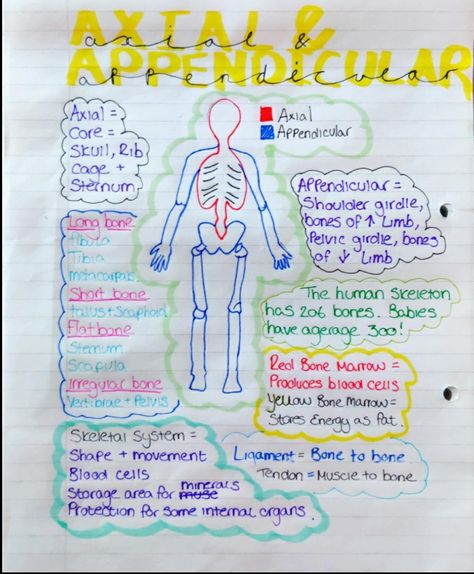 AXIAL &
axial &
APPENDICULAR
appendicular
Axial =
Core =
Skull, Rib
Cage +
Sternum
Axial
Appendicular
Appendicular =
Shoulder girdle,
bones of ↑ Limb,
Pelvic girdle, bones
of ↓ Limb
Long bone
fibula
Tibia
metacarpals
Short bone
talus + Scaphoid
Flat bone
Sternum
Scapula
Irregular bone
Vertibrae + Pelvis
The human Skeleton
has 206 bones. Babies
have agerage 300!
Red Bone Marrow =
Produces blood cells
Yellow Bone Marrow =
Stores Energy as Fat.
Skeletal System =
Shape + movement
Blood cells
minerals
Storage area for
Protection for some internal organs.
Ligament = Bone to bone
Tendon = Muscle to bone